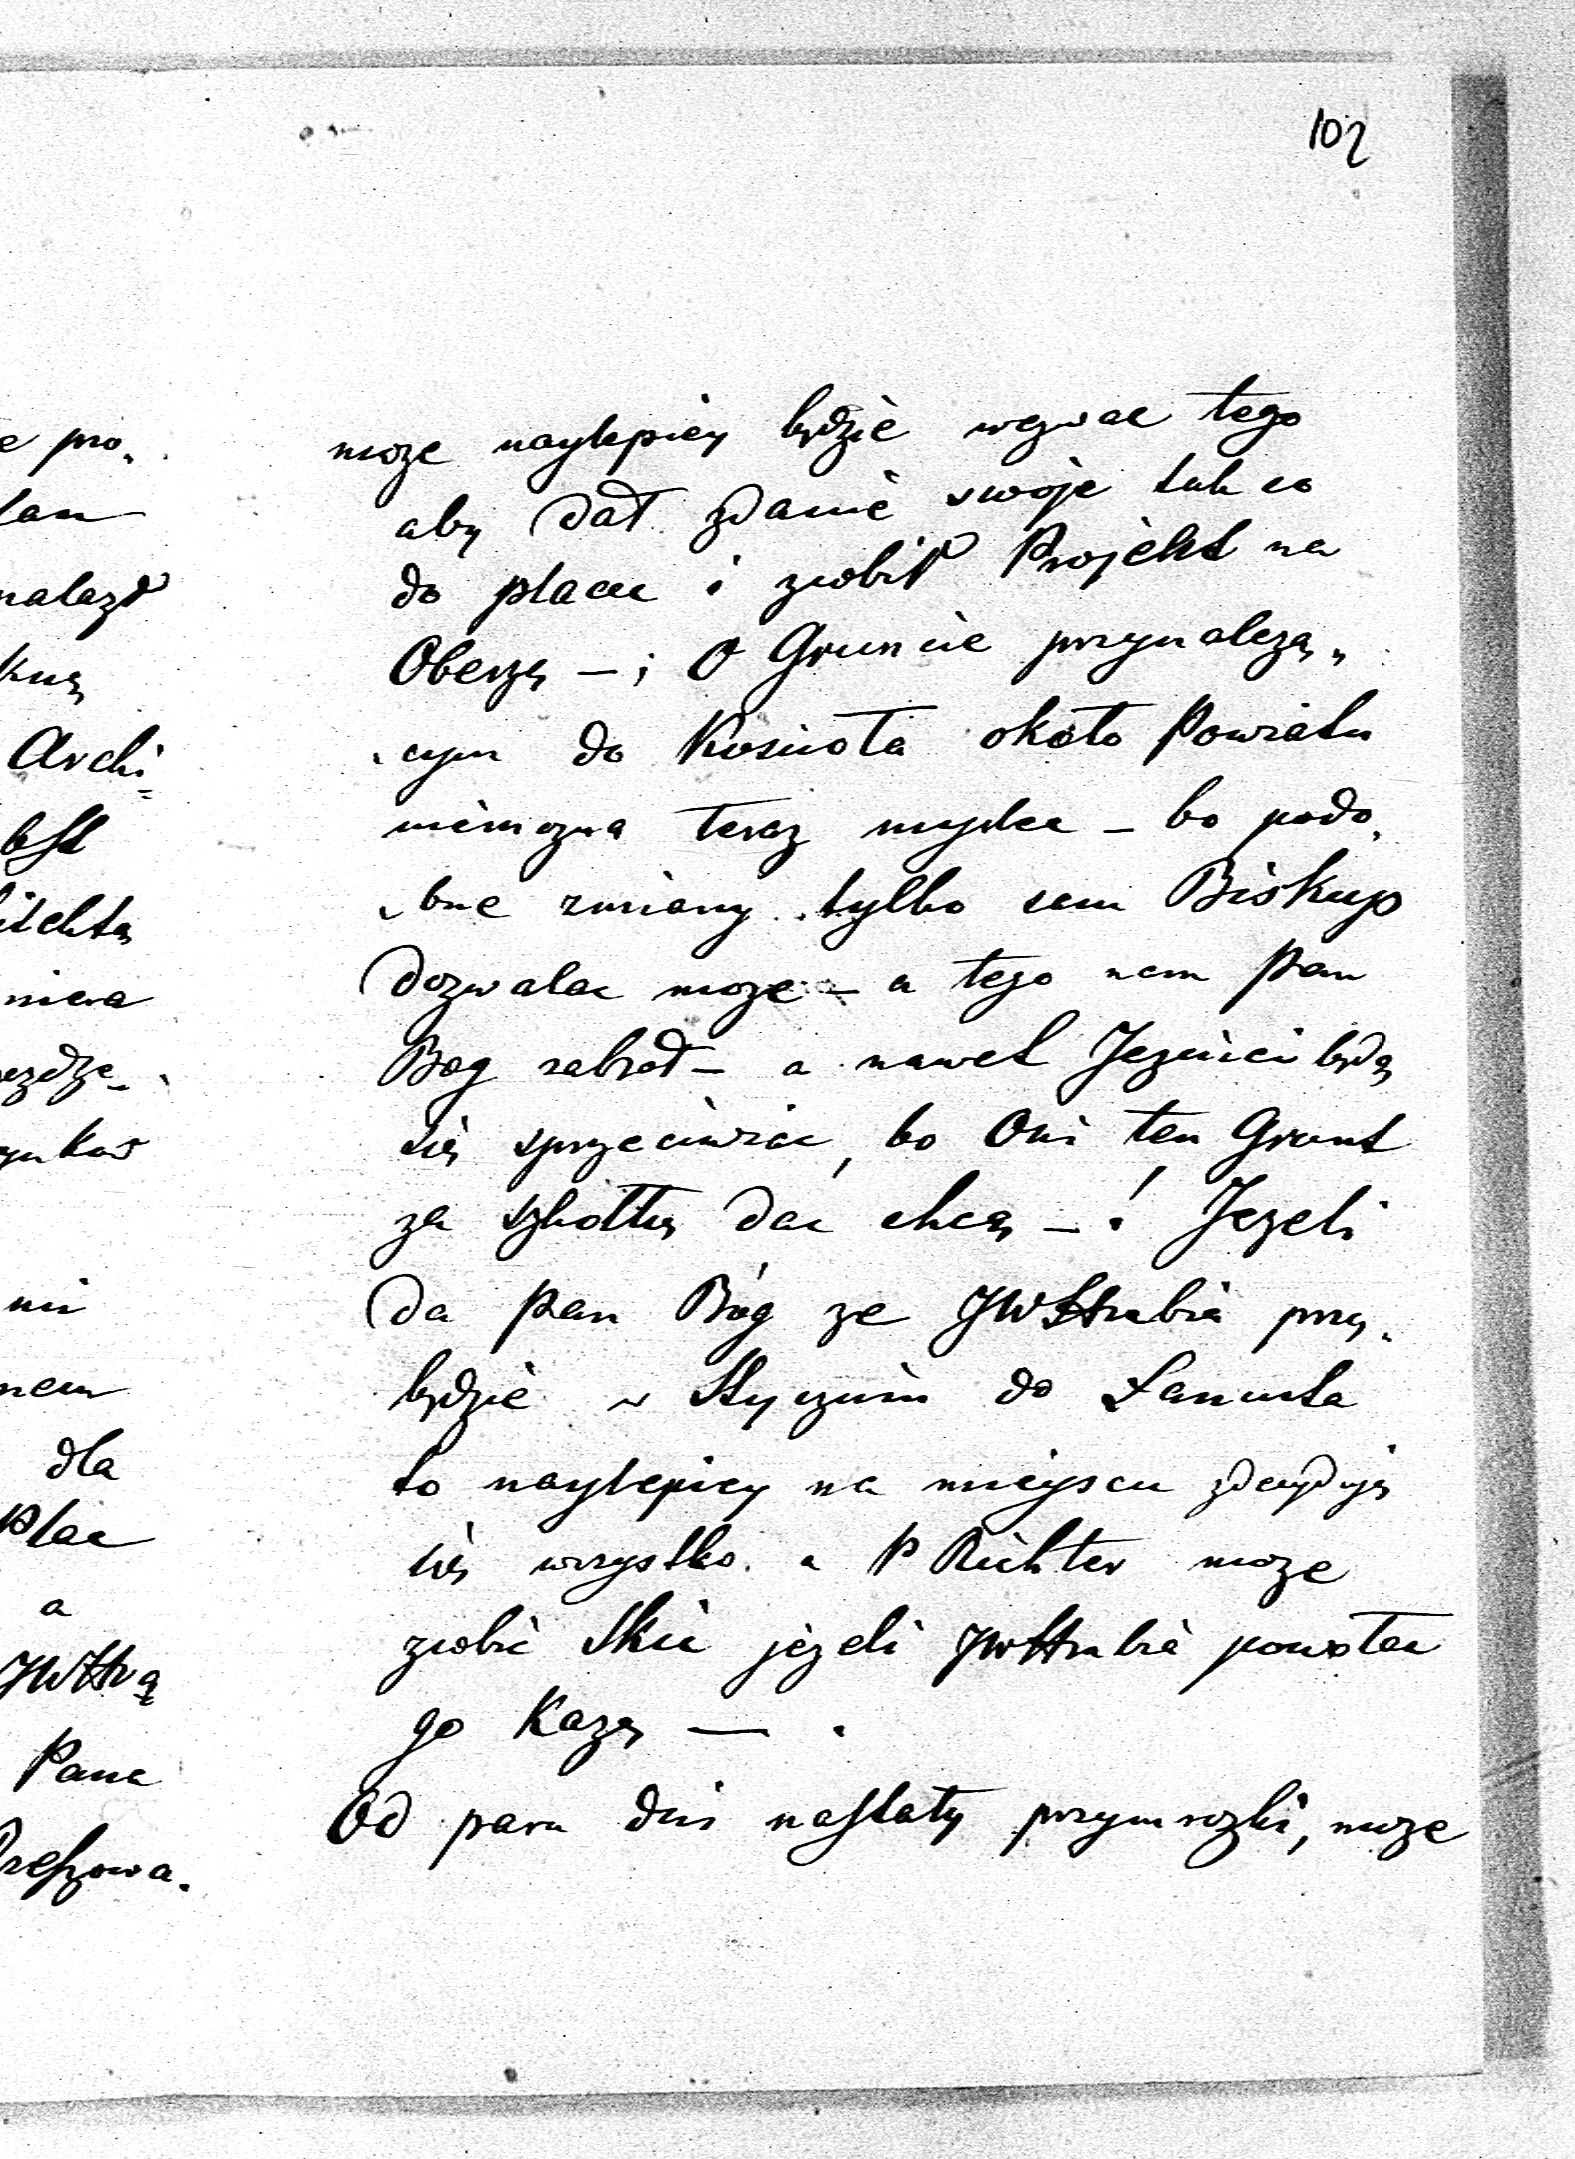 102
e pro„
lan
nalazł
kną
Archi=
był
itekta
niera
ezdze_
ynkow
ni
nem
dla
Plac
a
JWHra
Pana
Rzeszowa.
moze naylepiey będzie wezwac tego
aby dał zdanie swoje tak co
do placu i zrobił Projekt na
Oberzę – ; O Gruncie przynalezą„
„cym do Koscioła około Powiatu
niemozna teraz myslec – bo podo„
„bne zmiany tylko sam Biskup
dozwalac moze – a tego nam Pan
Bog zabrał – a nawet Jezuici będą
się sprzeciwiac, bo Oni ten Grunt
za szkołkę dać chcą – ! Jezeli
da Pan Bóg ze JWHrabia przy„
będzie w Styczniu do Łancuta
to naylepiey na mieyscu zdecyduję
się wszystko. a P Richter moze
zrobic Skic jezeli JWHrabia powołac
go Kazą — .
Od paru dni nastały przymrozki, moze